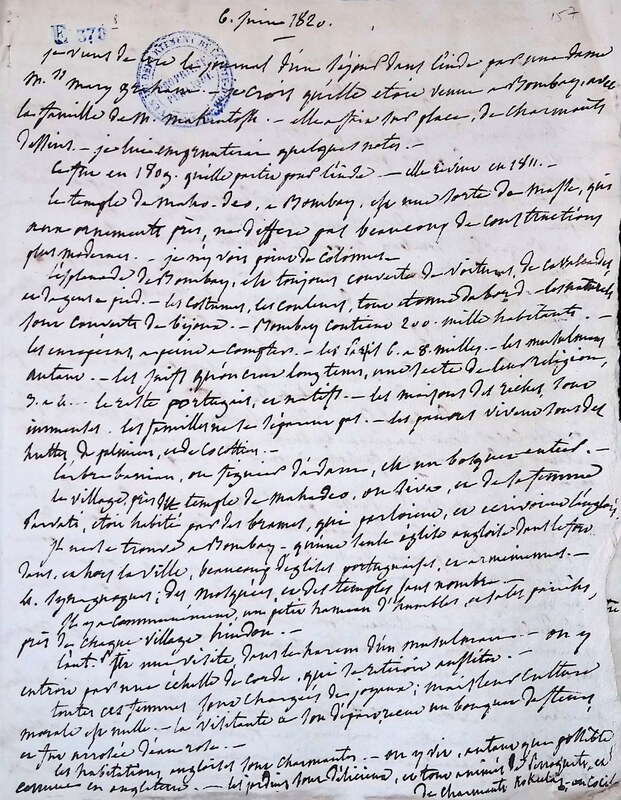 6. juin 1820.
157
E 378 8
je viens de lire le journal d'un séjour dans l'inde par une dame
mrs mary graham — je crois qu'elle etoit venue a Bombay, avec
la famille de M. Makintosh. — elle a fait sur place, de charmants
dessins. — je lui emprunterai quelques notes. —
Ce fut en 1809. qu'elle partit pour l'inde. — elle revint en 1811. —
le temple de Maha-deo, a Bombay, est une sorte de masse, qui
aux ornements près, ne differe pas beaucoup de constructions
plus modernes. — je n'y vois point de colonnes —
l'esplanade de Bombay, est toujours couverte de voitures, de cavalcades,
et de gens a pied. — les costumes, les couleurs, tout etonne d'abord. — les naturels
sont couverts de bijoux. — Bombay contient 200. mille habitants. —
les européens, a peine a compter. — les 6 a 8. milles. — les musulmans
autant. — les juifs qu'on crut longtems, une secte de leur religion,
3. a 4. — le reste portugais, et natifs. — les maisons des riches, sont
immenses. les familles ne se séparent pas. — les pauvres vivent sous des
huttes de palmier, et de cocotier. —
L'arbre banian, ou figuier d'adam, est un bosquet entier. —
le village, près du temple de Mahadeo, ou Siva, et de sa femme
Parvati, etoit habité par des brames, qui parloient, et ecrivoient l'anglois.
Il ne se trouve a Bombay — qu'une seule église angloise dans le fort
dans, et hors la ville, beaucoup d'églises portugaises, et arméniennes. —
des synagogues, des mosquées, et des temples sans nombre. —
Il y a communément, un petit hameau d'humbles, et sales parias,
près de chaque village hindou. —
L'aut. fit une visite, dans le harem d'un musulman. — on y
entroit par une échelle de corde, qui se retiroit aussitôt. —
toutes ces femmes sont chargées de joyaux; mais leur culture
morale est nulle. — la visitante a son départ reçut un bouquet de fleurs,
et fut arrosée d'eau rose. —
les habitations angloises sont charmantes. — on y vit, autant que possible
comme en angleterre. — les jardins sont délicieux, et tout animés de perroquets, et
de charmants